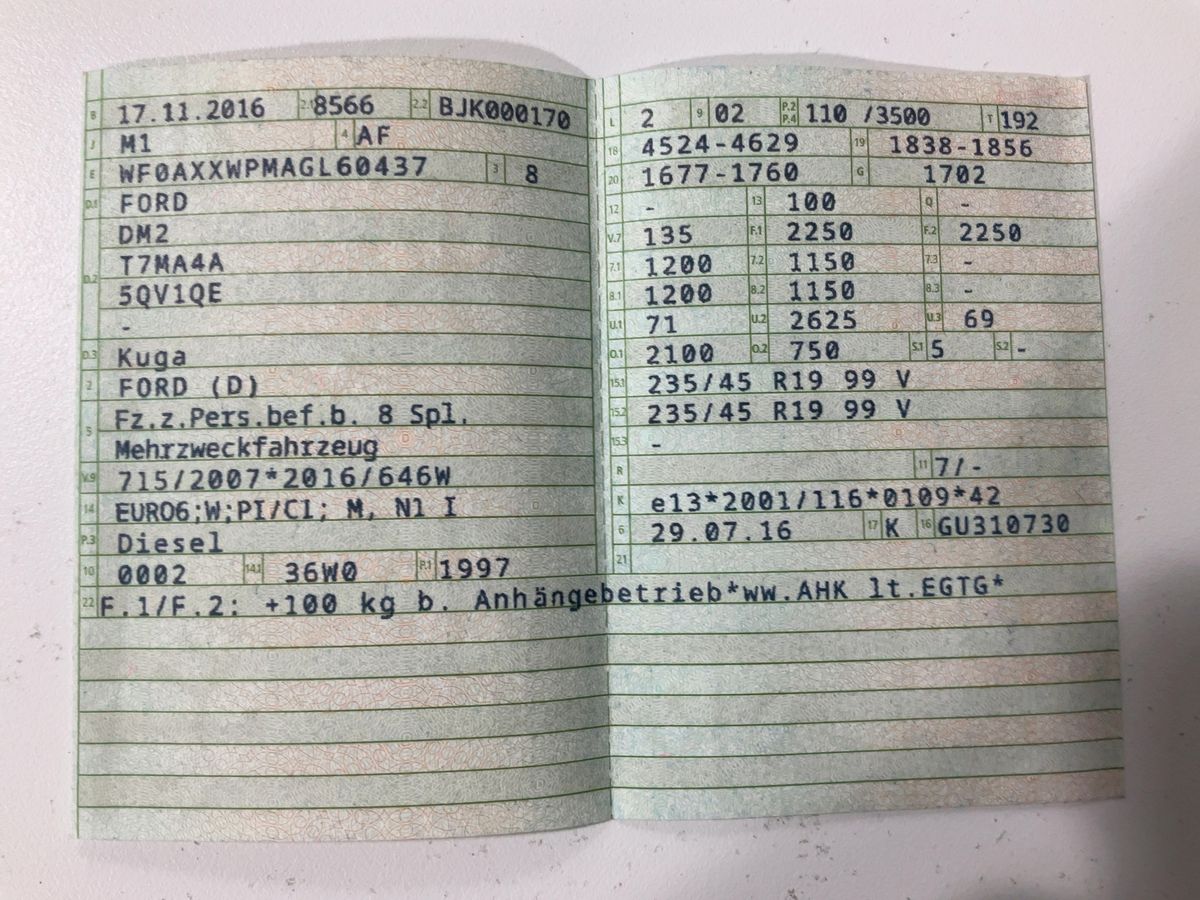 B 17.11.2016 2.1 8566 2.2 BJK000170
J M1 4 AF
E WF0AXXWPMAGL60437 3 8
D.1 FORD
DM2
D.2 T7MA4A
5QV1QE
-
D.3 Kuga
2 FORD (D)
5 Fz.z.Pers.bef.b. 8 Spl.
Mehrzweckfahrzeug
V.9 715/2007*2016/646W
14 EURO6;W;PI/CI; M, N1 I
P.3 Diesel
10 0002 14.1 36W0 P.1 1997
L 2 9 02 P.2 P.4 110 /3500 T 192
18 4524-4629 19 1838-1856
20 1677-1760 G 1702
12 - 13 100 Q -
V.7 135 F.1 2250 F.2 2250
7.1 1200 7.2 1150 7.3 -
8.1 1200 8.2 1150 8.3 -
U.1 71 U.2 2625 U.3 69
O.1 2100 O.2 750 S.1 5 S.2 -
15.1 235/45 R19 99 V
15.2 235/45 R19 99 V
15.3 -
R 11 7/-
K e13*2001/116*0109*42
6 29.07.16 17 K 16 GU310730
21
22 F.1/F.2: +100 kg b. Anhängebetrieb*ww.AHK lt.EGTG*